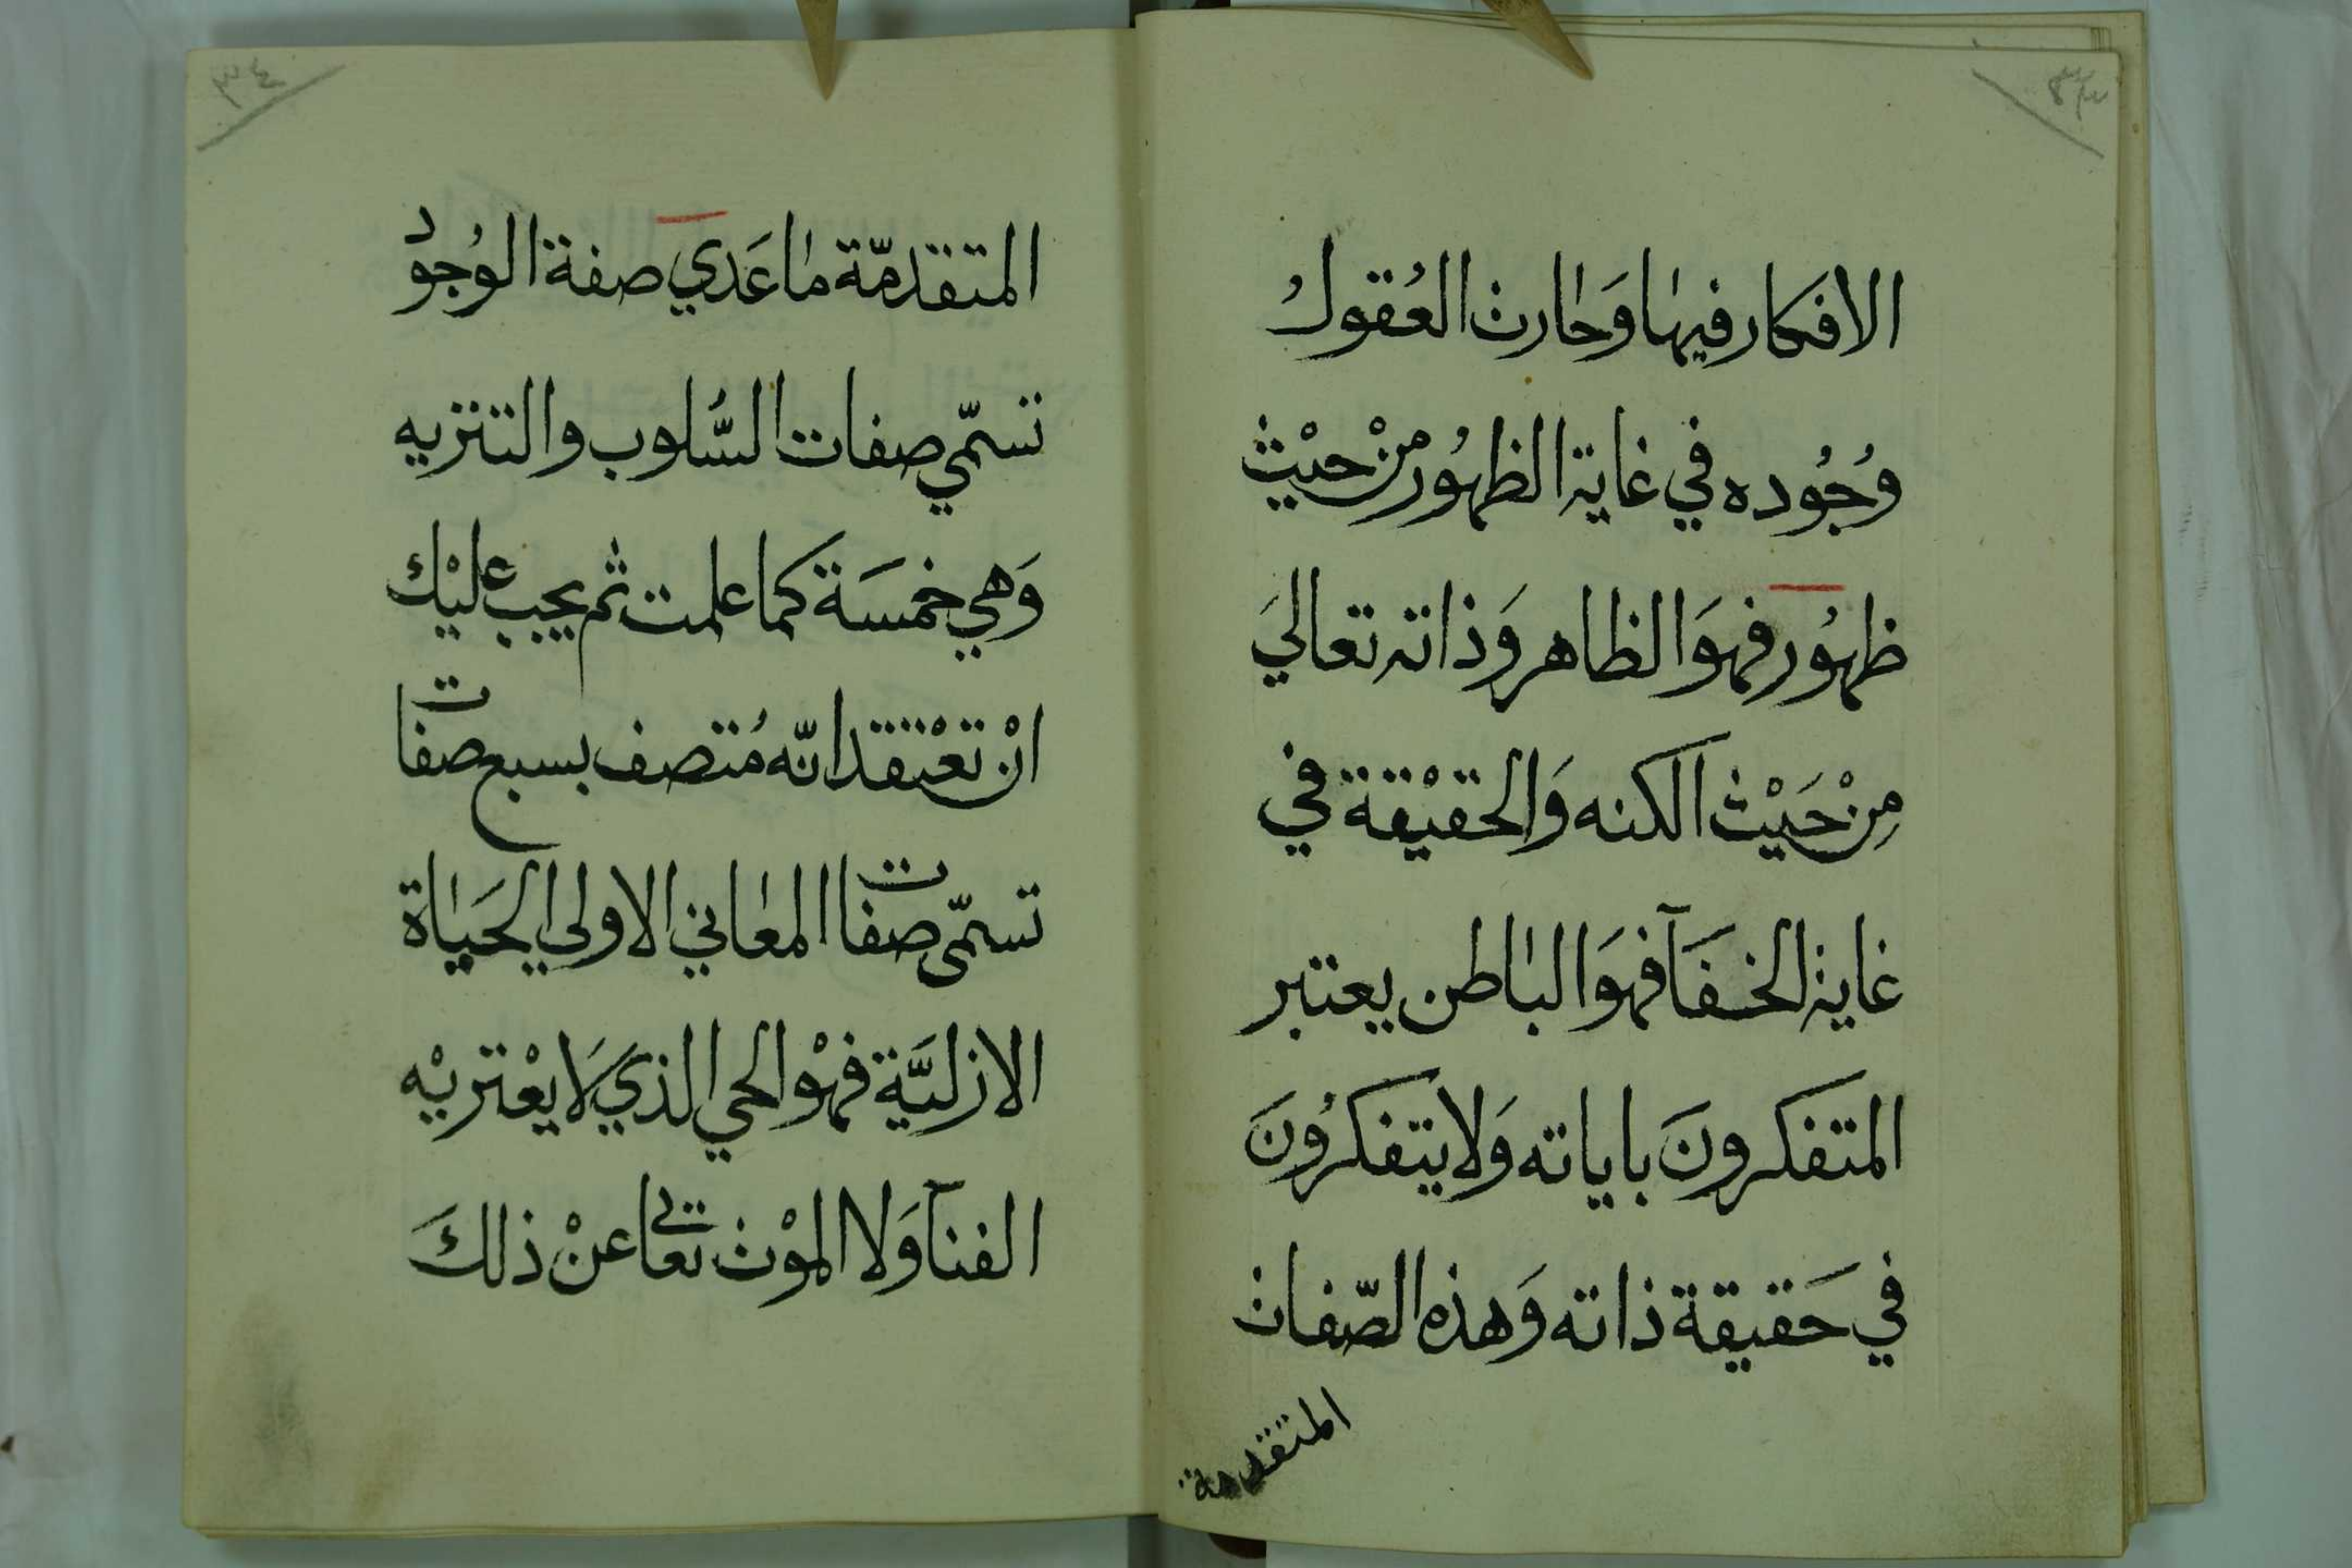 ٣٣
الافكار فيها وَحارت العُقول
وُجُوده في غاية الظهُور منْ حيْث
ظهُور فهوَ الظاهر وَذاته تعاليَ
مِنْ حَيْث الكنه وَالحقيْقة في
غاية الخفَآ فهوَ الباطن يعتبر
المتفكرونَ باياته وَلا يتفكرُونَ
في حَقيقة ذاته وَهذه الصّفات
المتقدمة
٣٤
المتقدمّة ما عَدي صفة الوُجود
تسمّي صفات السُّلوب والتنزيه
وَهي خمسَة كما علمت ثم يجب عليْك
انْ تعْتقد انّه مُتصف بسبع صفات
تسمّى صفات المعاني الاولي الحَياة
الازليَّة فهْو الحي الذي لَا يعْتريْه
الفنآ وَلا الموْت تعالى عنْ ذلكَ